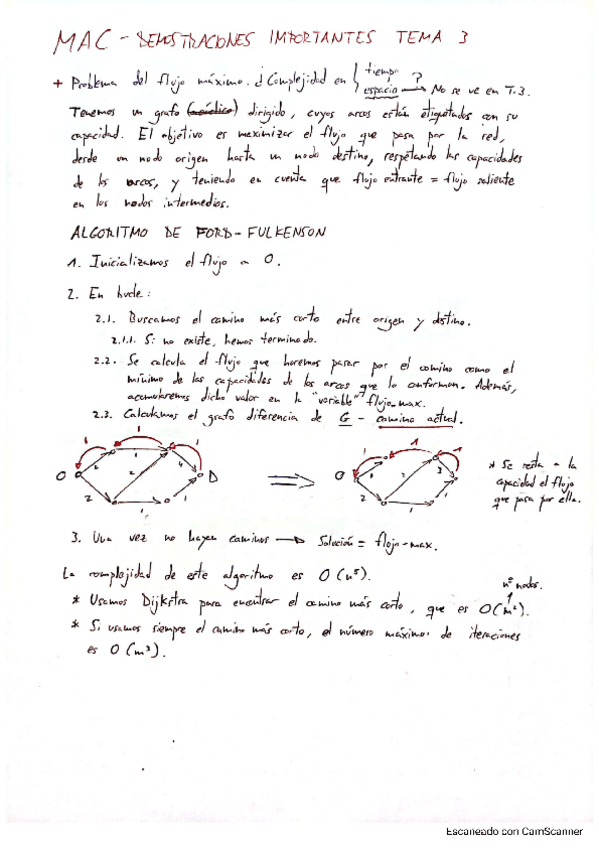 MAC - DEMOSTRACIONES IMPORTANTES TEMA 3
+ Problema del flujo máximo. ¿Complejidad en { tiempo espacio ? → No se ve en T.3.
Tenemos un grafo (acíclico) dirigido, cuyos arcos están etiquetados con su
capacidad. El objetivo es maximizar el flujo que pasa por la red,
desde un nodo origen hasta un nodo destino, respetando las capacidades
de los arcos, y teniendo en cuenta que flujo entrante = flujo saliente
en los nodos intermedios.
ALGORITMO DE FORD-FULKENSON
1. Inicializamos el flujo a 0.
2. En bucle:
2.1. Buscamos el camino más corto entre origen y destino.
2.1.1. Si no existe, hemos terminado.
2.2. Se calcula el flujo que haremos pasar por el camino como el
mínimo de las capacidades de los arcos que lo conforman. Además,
acumularemos dicho valor en la "variable" flujo_max.
2.3. Calculamos el grafo diferencia de G - camino actual.
1 1 1
1 4
O D
2 1 1
⇒
1 1 1
3
O
2 1 1
* Se resta a la
capacidad el flujo
que pasa por ella.
3. Una vez no hayan caminos → Solución = flujo-max.
La complejidad de este algoritmo es O(n⁵).
nº nodos.
* Usamos Dijkstra para encontrar el camino más corto, que es O(n²).
* Si usamos siempre el camino más corto, el número máximo de iteraciones
es O(n³).
Escaneado con CamScanner